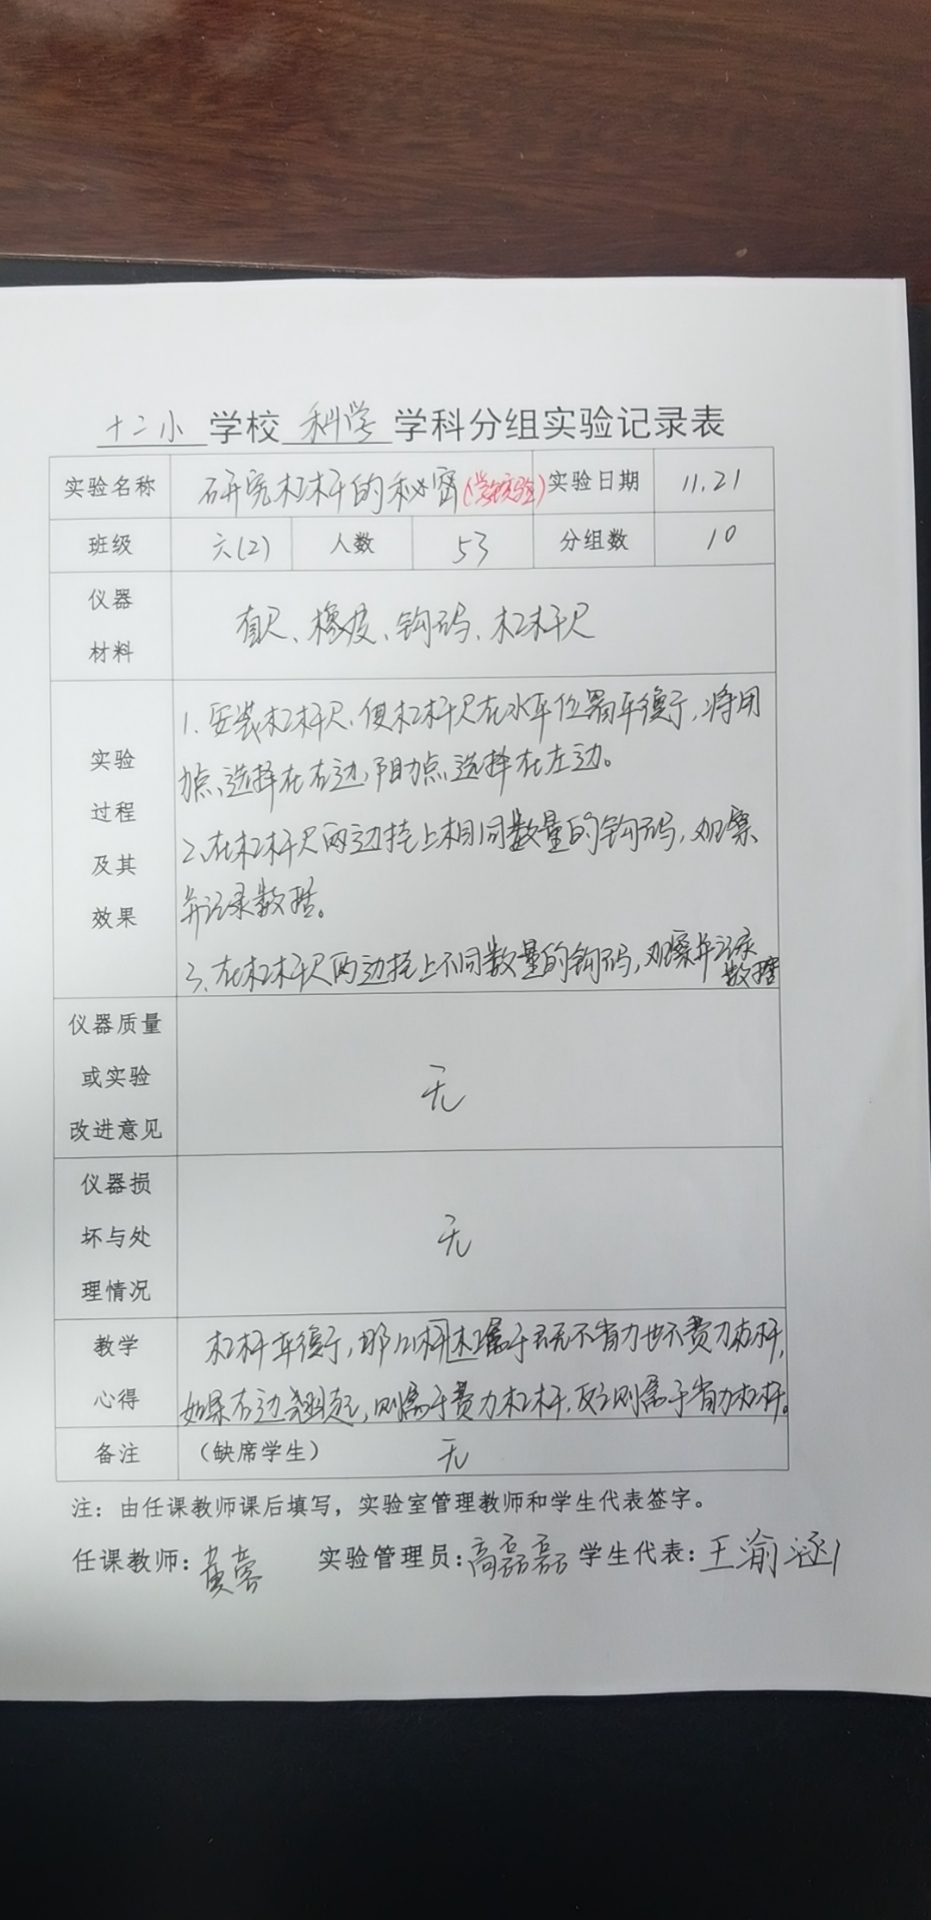 十二小 学校 科学 学科分组实验记录表
实验名称 研究杠杆的秘密 实验日期 11.21
班级 六(2) 人数 53 分组数 10
仪器
材料
直尺、橡皮、钩码、杠杆尺
实验
过程
及其
效果
1.安装杠杆尺,使杠杆尺在水平位置平衡,将用
力点选择在右边,阻力点选择在左边。
2、在杠杆尺两边挂上相同数量的钩码,观察
并记录数据。
3、在杠杆尺两边挂上不同数量的钩码,观察并记录
数据
仪器质量
或实验
改进意见
无
仪器损
坏与处
理情况
无
教学
心得
杠杆平衡,那么杠杆属于既不省力也不费力杠杆,
如果右边翘起,则属于费力杠杆,反之则属于省力杠杆。
备注 (缺席学生) 无
注:由任课教师课后填写,实验室管理教师和学生代表签字。
任课教师:黄蓉 实验管理员:高磊磊 学生代表:王渝涵